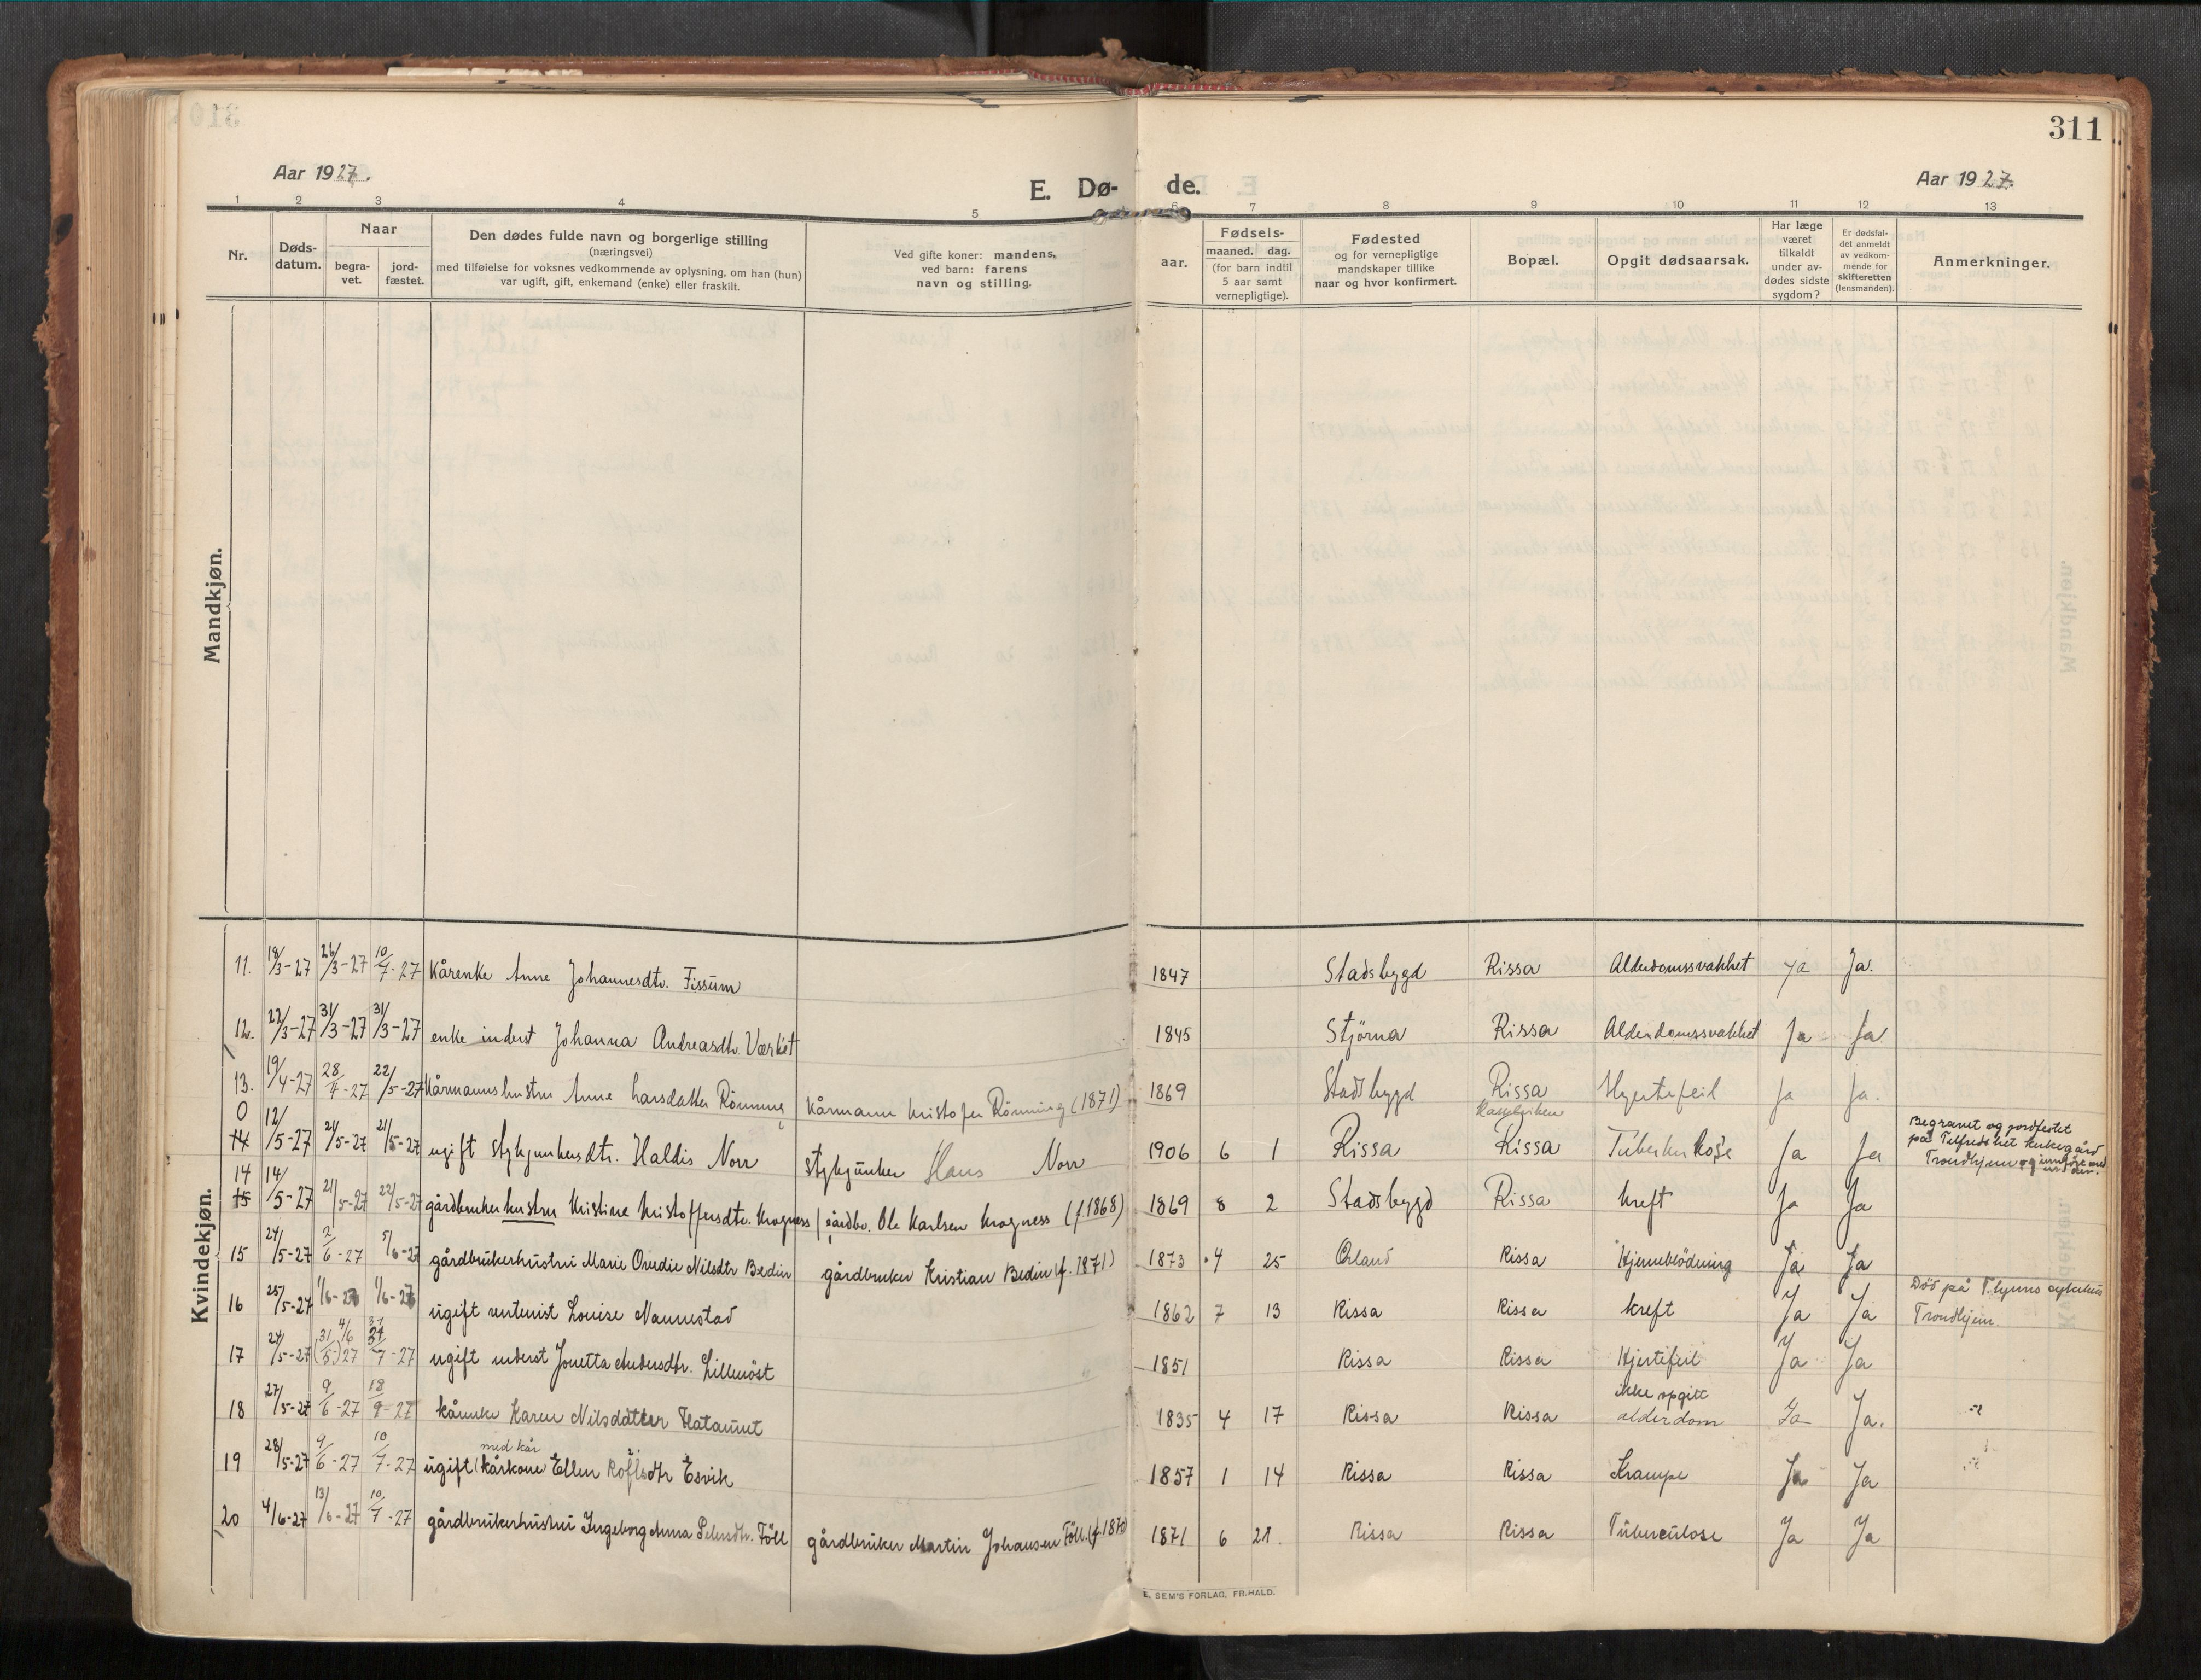 311
Aar 1927.
E. Dø-
de.
Aar 1927.
1 2 3 4 5 6 7 8 9 10 11 12 13
Nr.
Døds-
datum.
Naar
begra-
vet.
jord-
fæstet.
Den dødes fulde navn og borgerlige stilling
(næringsvei)
med tilføielse for voksnes vedkommende av oplysning, om han (hun)
var ugift, gift, enkemand (enke) eller fraskilt.
Ved gifte koner: mandens,
ved barn: farens
navn og stilling.
aar.
Fødsels-
maaned. dag.
(for barn indtil
5 aar samt
vernepligtige).
Fødested
og for vernepligtige
mandskaper tillike
naar og hvor konfirmert.
Bopæl.
Opgit dødsaarsak.
Har læge
været
tilkaldt
under av-
dødes sidste
sygdom?
Er dødsfal-
det anmeldt
av vedkom-
mende for
skifteretten
(lensmanden).
Anmerkninger.
Mandkjøn.
Kvindekjøn.
11. 18/3-27 26/3-27 10/7-27 Kårenke Anne Johannesdtr. Fissum 1847 Stadsbygd Rissa Alderdomssvakhet Ja Ja.
12. 22/3-27 31/3-27 31/3-27 enke inderst Johanna Andreasdtr. Værket 1845 Stjörna Rissa Alderdomssvakhet Ja Ja
13. 19/4-27 28/4-27 22/5-27 Kårmannshustru Anne Larsdatter Rönning Kårmann Kristofer Rönning (1871) 1869 Stadsbygd Rissa Hjertefeil Ja Ja.
0 14 12/5-27 21/5-27 21/5-27 ugift Stykjunkersdtr. Haldis Norr Stykjunker Hans Norr 1906 6 1 Rissa Rissa Tuberkulose Ja Ja
Begravet og jordfestet
på Tilfredshet kirkegård
Trondhjem
14 15 14/5-27 21/5-27 22/5-27 gårdbrukerhustru Kristine Kristoffersdtr. Kragness gårdbr. Ole Karlsen Kragness (f 1868) 1869 8 2 Stadsbygd Rissa kreft Ja Ja
15 24/5-27 2/6-27 5/6-27 gårdbrukerhustru Marie Ovedie Nilsdtr Bedin gårdbruker Kristian Bedin (f. 1871) 1873 4 25 Örland Rissa Hjerneblödning Ja Ja
16 25/5-27 1/6-27 1/6-27 ugift rentenist Louise Nannestad 1862 7 13 Rissa Rissa kreft Ja Ja
Död på T.hjems sykehus
Trondhjem.
17 24/5-27 (31/5) 4/6 27 31/7-27 ugift inderst Jonetta Andersdtr. Lilleröst 1851 Rissa Rissa Hjertefeil Ja Ja
18 27/5-27 9/6-27 18/9-27 kårenke Karen Nilsdatter Hataunet 1835 4 17 Rissa Rissa ikke opgitt
alderdom Ja Ja.
19 28/5-27 9/6-27 10/7-27 ugift (med kår) kårkone Ellen Rolfsdtr Esvik 1857 1 14 Rissa Rissa Krampe Ja Ja
20 4/6-27 13/6-27 10/7-27 gårdbrukerhustru Ingeborg Anna Petersdtr. Föll gårdbruker Martin Johansen Föll. (f. 1870) 1871 6 21. Rissa Rissa Tuberculose Ja Ja
E. SEM'S FORLAG, FR.HALD.